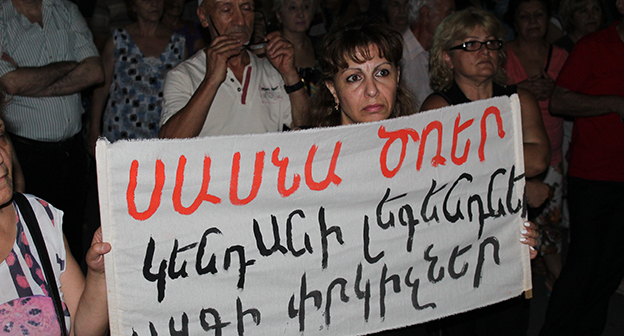 ՍԱՍՆԱ ԾՌԵՐ
ԿԵՆԴԱՆԻ ԼԵԳԵՆԴՆԵՐ
ԱԶԳԻ ՓՐԿԻՉՆԵՐ